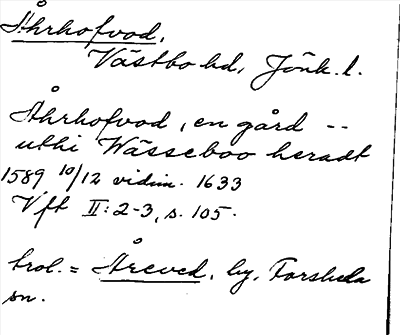 Åhrhofvod,
Västbo hd, Jönk. l.
Åhrhofvod, en gård --
uthi Wässeboo heradt
1589 10/12 vidim. 1633
Vft II:2-3, s. 105.
trol. = Åreved, by, Forsheda
sn.